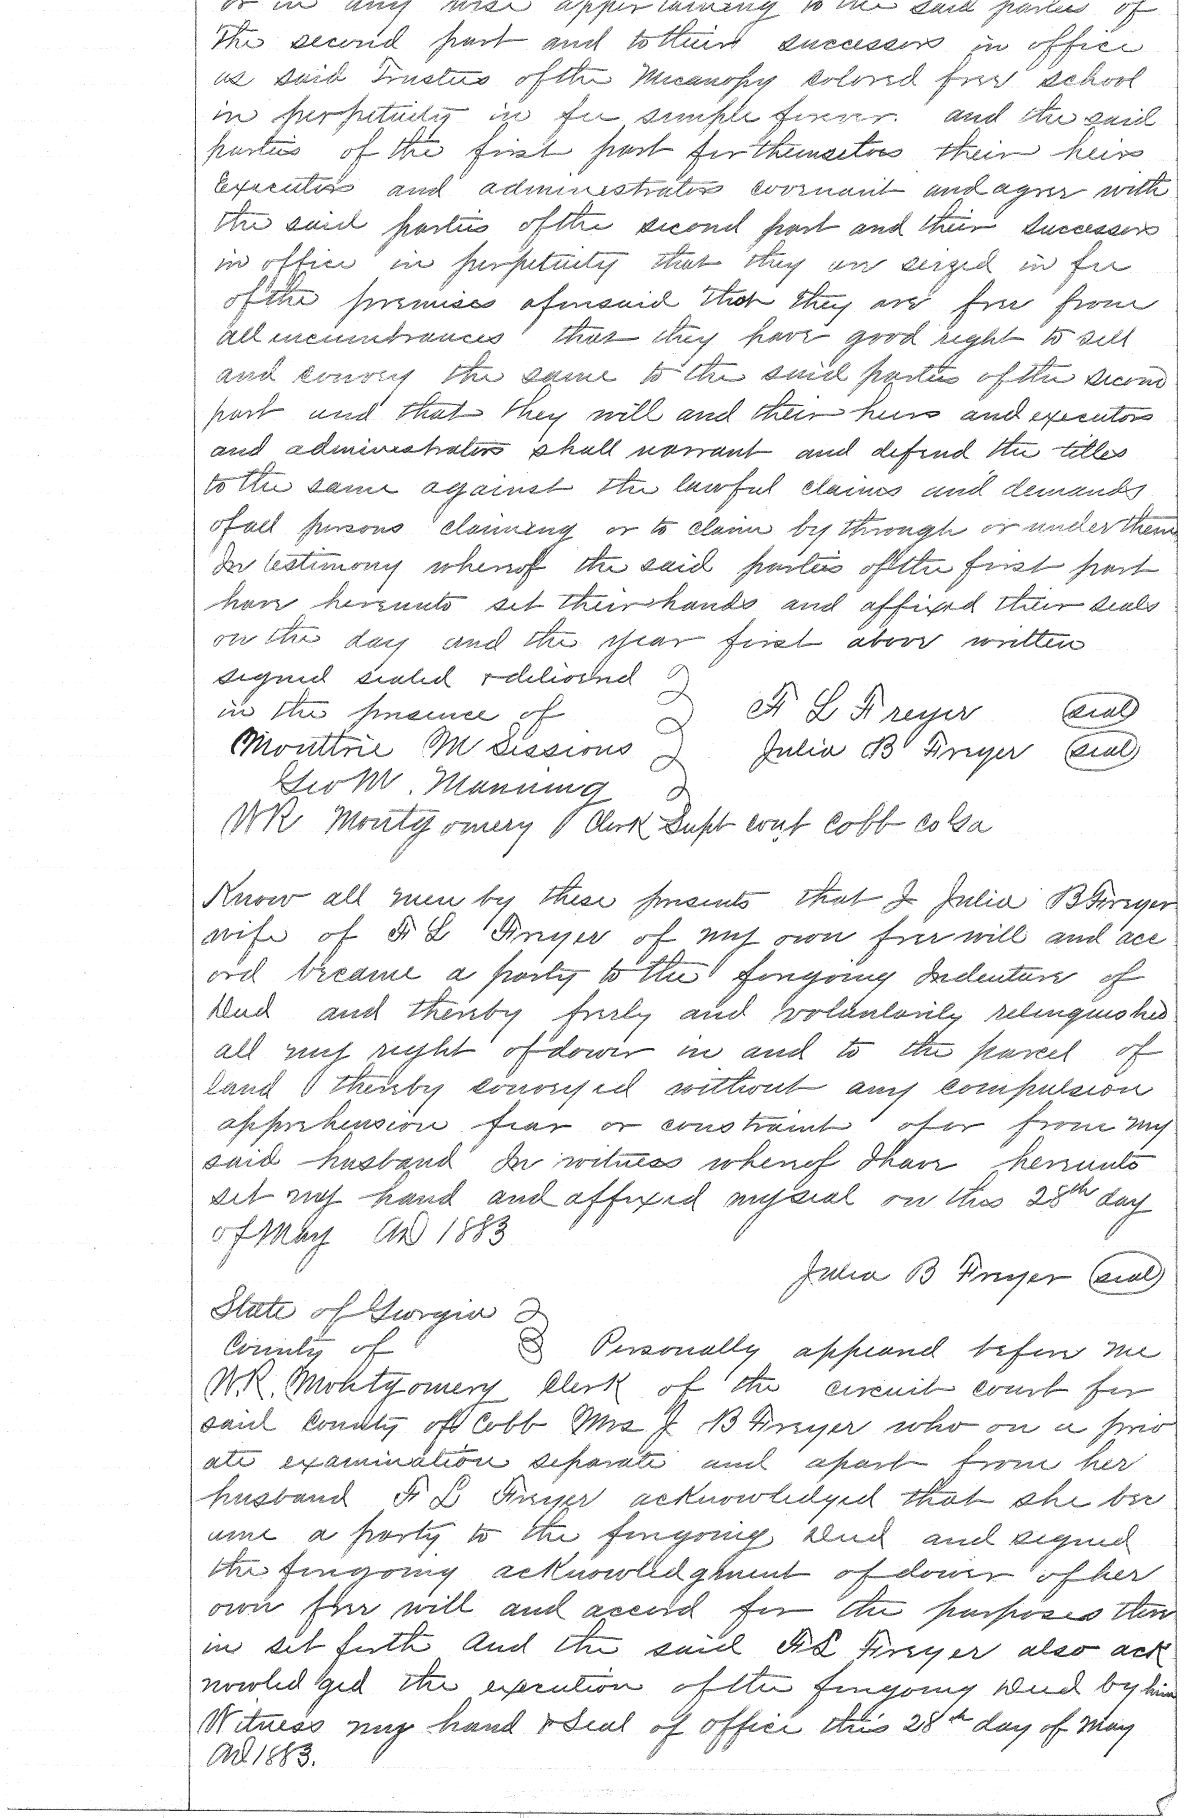 or in any wise appertaining to the said parties of
the second part and to their successors in office
as said Trustees of the Micanopy colored free school
in perpetuity in fee simple forever. and the said
parties of the first part for themselves their heirs
Executors and administrators covenant and agree with
the said parties of the second part and their successors
in office in perpetuity that they are seized in fee
of the premises aforesaid that they are free from
all incumbrances that they have good right to sell
and convey the same to the said parties of the second
part and that they will and their heirs and executors
and administrators shall warrant and defend the titles
to the same against the lawful claims and demands
of all persons claiming or to claim by through or under them
In testimony whereof the said parties of the first part
have hereunto set their hands and affixed their seals
on the day and the year first above written
signed sealed & delivered
in the presence of F L Freyer (seal)
Moultrie M Sessions Julia B Freyer (seal)
Geo M. Manning
W R Montgomery Clerk Supt court Cobb Co Ga
Know all men by these presents that I Julia B Freyer
wife of F L Freyer of my own free will and acc
ord became a party to the foregoing Indenture of
Deed and thereby freely and voluntarily relinquished
all my right of dower in and to the parcel of
land thereby conveyed without any compulsion
apprehension fear or constraint of or from my
said husband In witness whereof I have hereunto
set my hand and affixed my seal on this 28th day
of May AD 1883
Julia B Freyer (seal)
State of Georgia
County of Personally appeared before me
W.R. Montgomery Clerk of the circuit court for
said County of Cobb Mrs J B Freyer who on a priv
ate examination separate and apart from her
husband F L Freyer acknowledged that she bec
ame a party to the foregoing Deed and signed
the foregoing acknowledgment of dower of her
own free will and accord for the purposes there
in set forth And the said F L Freyer also ack
nowledged the execution of the foregoing Deed by him
Witness my hand & Seal of office this 28th day of May
AD 1883.